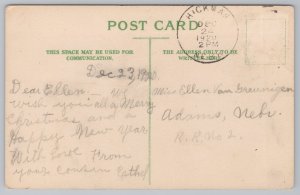 POST CARD
THIS SPACE MAY BE USED FOR
COMMUNICATION.
THE ADDRESS ONLY TO BE
HICKMAN
DEC
24
2 PM
Dec 23, 1920.
Dear Ellen — we
wish you all a Merry
Christmas and a
Happy New Year
With Love From
your cousin Esther
Miss Ellen Van
Adams, Nebr.
R.R. No 2.